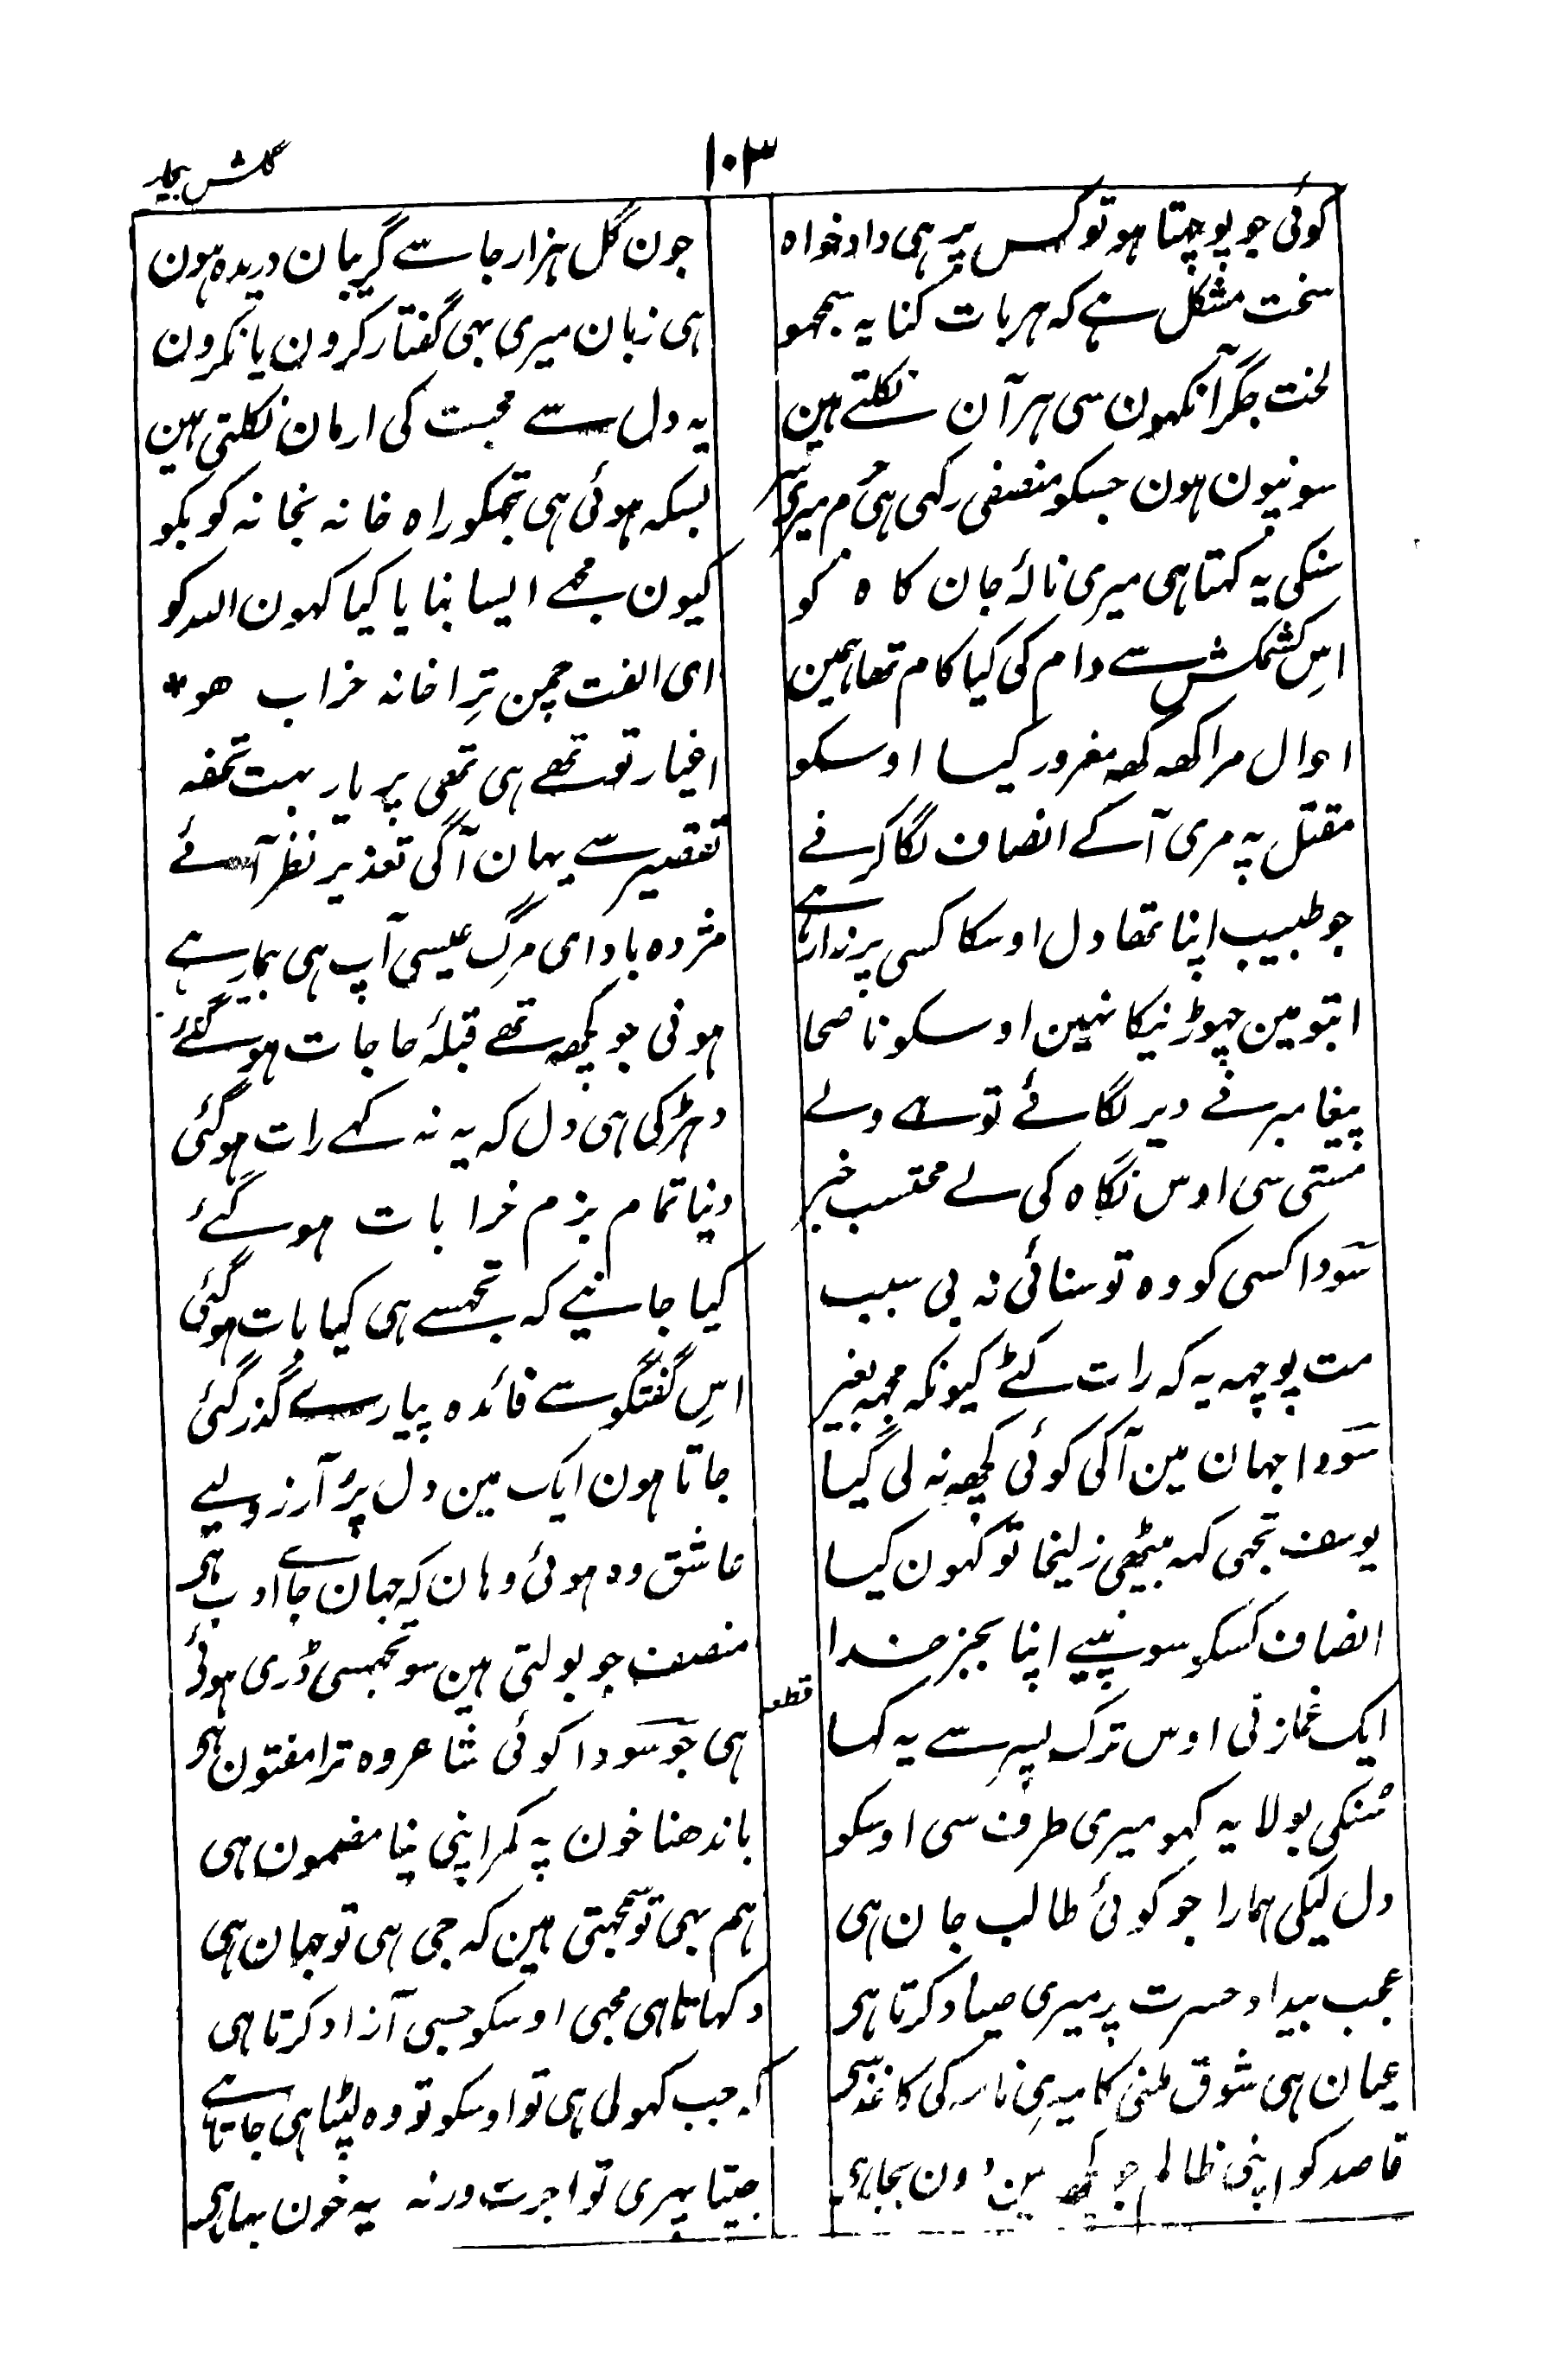 ۱۰۳
گلشن بیخار
کوئی جو پوچھتا ہو تو کس پر ہی داد خواہ
جون گل ہزار جا سے گریبان دریدہ ہون
سخت مشکل ہے کہ ہر بات کنایہ سمجھو
ہی زبان میری بہی گفتار کرون یا نکرون
لخت جگر آنکہون سی ہر آن نکلتے ہین
یہ دل سے محبت کی ارمان نکلتی ہین
سونپون ہون جسکو منصفی رکہی ہی
بسکہ ہوئی ہی تجہکو راہ خانہ بخانہ کو بکو
سنکی یہ کہتا ہی میری نالۂ جان کاہ کو
کیون مجھے ایسا بنایا کیا کہون اللہ کو
اِس کشمکش سے دام کی کیا کام تھا ہمین
ای الفت چمن تِرا خانہ خراب ھو *
احوال مرا کھہ کھہ مغرور کیسا اوسکو
اغیار تو تھے ہی تھی پر یار بہت تحفہ
مقتل پہ مری آ کے انصاف لگا کرنے
تقصیر سے یہان آگی تعذیر نظر آئے
جو طبیب اپنا تھا دل اوسکا کسی پر زار ہے
مژدہ باد ای مرگ عیسی آپ ہی بیمار ہے
ابتو مین چہوڑنیکا نہین اوسکو ناصحا
ہونی جو کچھہ تھے قبلۂ حاجات ہو گئے
پیغامبر نے دیر لگائے تو سے ولے
دہڑکی ہی دل کہ یہ نہ کہے رات ہو گئی
مستی سی اوس نگاہ کی لے محتسب خبر
دنیا تمام بزم خرابات ہو گئے
سودا کسی کو وہ تو ستائی نہ بی سبب
کیا جانیے کہ تجھسے ہی کیا بات ہو گئی
مت پوچہہ یہ کہ رات کٹے کیونکہ مجہہ بغیر
اِس گفتگو سے فائدہ پیارے گذر گئی
سودا جہان مین آکی کوئی کچھہ نہ لی گیا
جاتا ہون ایک مین دل پُر آرزو لیے
یوسف تجہی کہہ بیٹھی زلیخا تو کہون کیسا
عاشق وہ ہوئی وہان کہ جہان جاے ادب ہی
انصاف کسکو سونپیے اپنا بجز خدا
منصف جو بولتی ہین سو تجہسی ڈری ہوئی
قطعہ
ایک غماز نی اوس ترک پسر سے یہ کہا
ہی جو سودا کوئی شاعر وہ ترا مفتون ہی
سُنکی بولا یہ کہو میری طرف سی اوسکو
باندھنا خون پہ کمر اپنی نیا مضمون ہی
دل لیکی ہمارا جو کوئی طالب جان ہی
ہم بہی تو سمجہتی ہین کہ جی ہی تو جہان ہی
عجب بیداد حسرت پر میری صیاد کرتا ہی
دکہاتا ہی مجہی اوسکو جسی آزاد کرتا ہی
عیان ہی شوق ملنی کا میری نامہ کی کاغذ سی
کہ جب کہولی ہی تو اوسکو تو وہ لپٹا ہی جاتا ہے
قاصد کو اپنی ظالم جو کچھہ مین دون بجا ہی
جیتا پہری تو اجرت ورنہ یہ خون بہا ہی